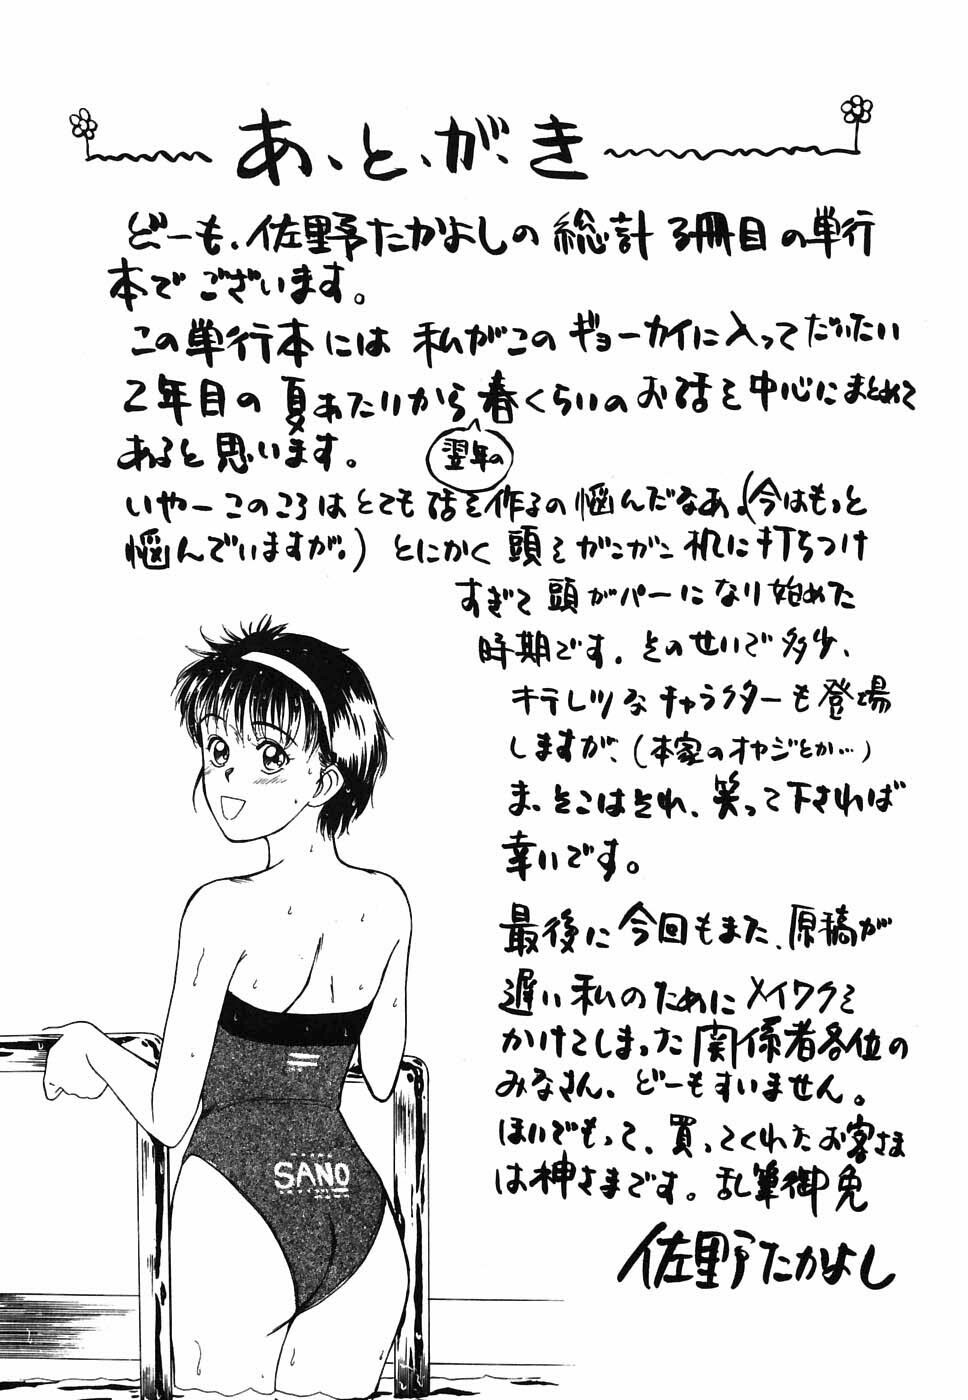 あ、と、が、き
どーも、佐野たかよしの総計3冊目の単行
本でございます。
この単行本には私がこのギョーカイに入ってだいたい
2年目の夏あたりから春くらいのお話を中心にまとめて
翌年の
あると思います。
いやーこのころはとても話を作るの悩んだなあ。(今はもっと
悩んでいますが。)とにかく頭をガンガン机に打ちつけ
すぎて頭がパーになり始めた
時期です。そのせいで多少、
キテレツなキャラクターも登場
しますが、(本家のオヤジとか…)
ま、そこはそれ、笑って下されば
幸いです。
最後に今回もまた、原稿が
遅い私のためにメイワクを
かけてしまった関係者各位の
みなさん、どーもすいません。
ほいでもって、買ってくれたお客さま
は神さまです。乱筆御免
佐野たかよし
SANO